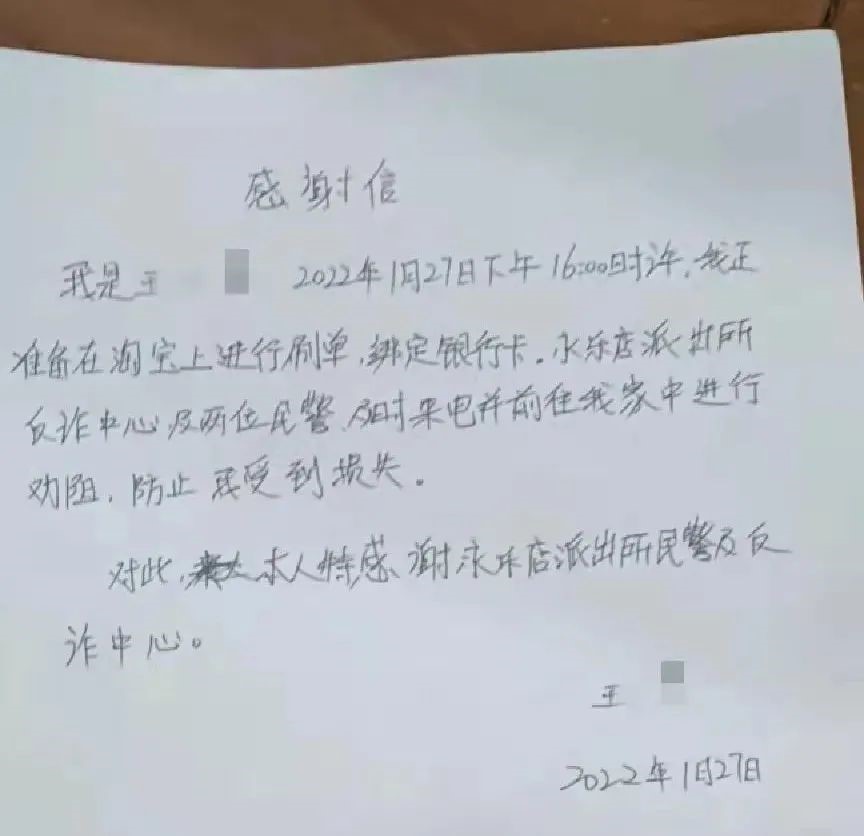 感谢信
我是王 2022年1月27日下午16:00时许,我正
准备在淘宝上进行刷单,绑定银行卡.永乐店派出所
反诈中心及两位民警及时来电并前往我家中进行
劝阻,防止我受到损失。
对此,本人特感谢永乐店派出所民警及反
诈中心。
王
2022年1月27日